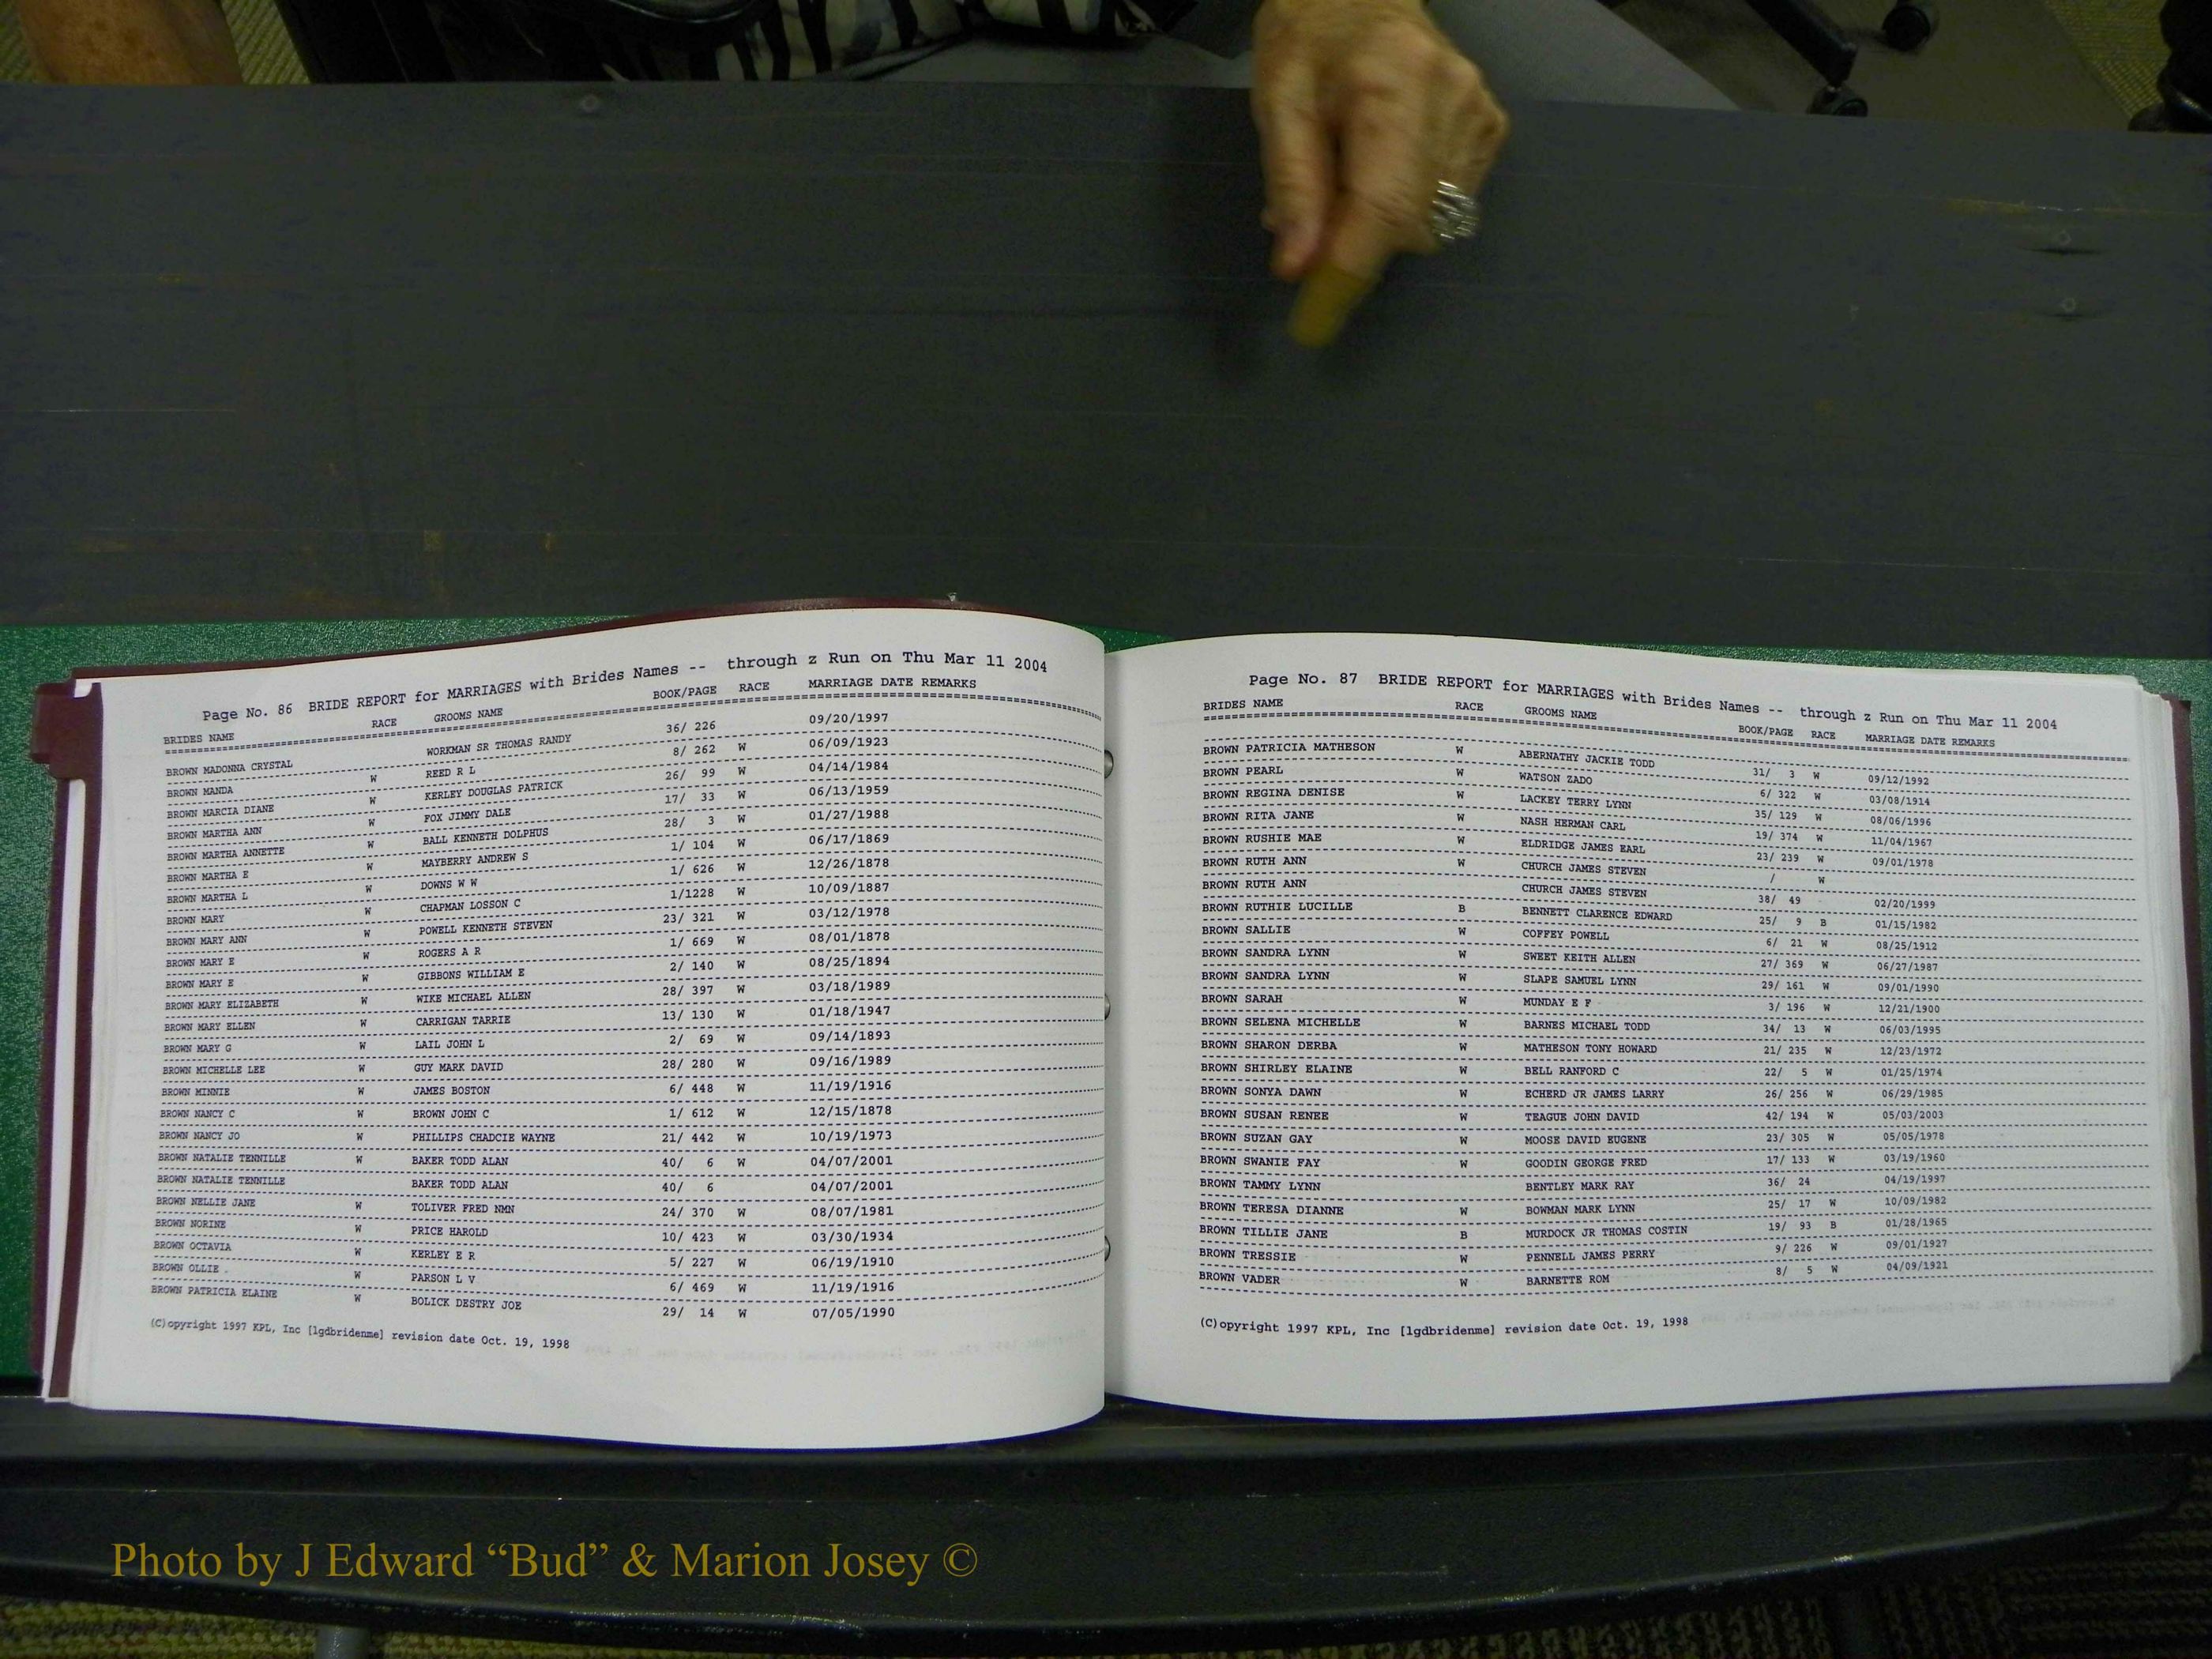 Page No. 86 BRIDE REPORT for MARRIAGES with Brides Names -- through z Run on Thu Mar 11 2004
BRIDES NAME RACE GROOMS NAME BOOK/PAGE RACE MARRIAGE DATE REMARKS
BROWN MADONNA CRYSTAL WORKMAN SR THOMAS RANDY 36/ 226 09/20/1997
BROWN MANDA W REED R L 8/ 262 W 06/09/1923
BROWN MARCIA DIANE W KERLEY DOUGLAS PATRICK 26/ 99 W 04/14/1984
BROWN MARTHA ANN W FOX JIMMY DALE 17/ 33 W 06/13/1959
BROWN MARTHA ANNETTE W BALL KENNETH DOLPHUS 28/ 3 W 01/27/1988
BROWN MARTHA E W MAYBERRY ANDREW S 1/ 104 W 06/17/1869
BROWN MARTHA L W DOWNS W W 1/ 626 W 12/26/1878
BROWN MARY W CHAPMAN LOSSON C 1/1228 W 10/09/1887
BROWN MARY ANN W POWELL KENNETH STEVEN 23/ 321 W 03/12/1978
BROWN MARY E W ROGERS A R 1/ 669 W 08/01/1878
BROWN MARY E W GIBBONS WILLIAM E 2/ 140 W 08/25/1894
BROWN MARY ELIZABETH W WIKE MICHAEL ALLEN 28/ 397 W 03/18/1989
BROWN MARY ELLEN W CARRIGAN TARRIE 13/ 130 W 01/18/1947
BROWN MARY G W LAIL JOHN L 2/ 69 W 09/14/1893
BROWN MICHELLE LEE W GUY MARK DAVID 28/ 280 W 09/16/1989
BROWN MINNIE W JAMES BOSTON 6/ 448 W 11/19/1916
BROWN NANCY C W BROWN JOHN C 1/ 612 W 12/15/1878
BROWN NANCY JO W PHILLIPS CHADCIE WAYNE 21/ 442 W 10/19/1973
BROWN NATALIE TENNILLE W BAKER TODD ALAN 40/ 6 W 04/07/2001
BROWN NATALIE TENNILLE BAKER TODD ALAN 40/ 6 04/07/2001
BROWN NELLIE JANE W TOLIVER FRED NMN 24/ 370 W 08/07/1981
BROWN NORINE W PRICE HAROLD 10/ 423 W 03/30/1934
BROWN OCTAVIA W KERLEY E R 5/ 227 W 06/19/1910
BROWN OLLIE W PARSON L V 6/ 469 W 11/19/1916
BROWN PATRICIA ELAINE W BOLICK DESTRY JOE 29/ 14 W 07/05/1990
(C)opyright 1997 KPL, Inc [lgdbridenme] revision date Oct. 19, 1998
Page No. 87 BRIDE REPORT for MARRIAGES with Brides Names -- through z Run on Thu Mar 11 2004
BRIDES NAME RACE GROOMS NAME BOOK/PAGE RACE MARRIAGE DATE REMARKS
BROWN PATRICIA MATHESON W ABERNATHY JACKIE TODD 31/ 3 W 09/12/1992
BROWN PEARL W WATSON ZADO 6/ 322 W 03/08/1914
BROWN REGINA DENISE W LACKEY TERRY LYNN 35/ 129 W 08/06/1996
BROWN RITA JANE W NASH HERMAN CARL 19/ 374 W 11/04/1967
BROWN RUSHIE MAE W ELDRIDGE JAMES EARL 23/ 239 W 09/01/1978
BROWN RUTH ANN W CHURCH JAMES STEVEN / W
BROWN RUTH ANN CHURCH JAMES STEVEN 38/ 49 02/20/1999
BROWN RUTHIE LUCILLE B BENNETT CLARENCE EDWARD 25/ 9 B 01/15/1982
BROWN SALLIE W COFFEY POWELL 6/ 21 W 08/25/1912
BROWN SANDRA LYNN W SWEET KEITH ALLEN 27/ 369 W 06/27/1987
BROWN SANDRA LYNN W SLAPE SAMUEL LYNN 29/ 161 W 09/01/1990
BROWN SARAH W MUNDAY E F 3/ 196 W 12/21/1900
BROWN SELENA MICHELLE W BARNES MICHAEL TODD 34/ 13 W 06/03/1995
BROWN SHARON DERBA W MATHESON TONY HOWARD 21/ 235 W 12/23/1972
BROWN SHIRLEY ELAINE W BELL RANFORD C 22/ 5 W 01/25/1974
BROWN SONYA DAWN W ECHERD JR JAMES LARRY 26/ 256 W 06/29/1985
BROWN SUSAN RENEE W TEAGUE JOHN DAVID 42/ 194 W 05/03/2003
BROWN SUZAN GAY W MOOSE DAVID EUGENE 23/ 305 W 05/05/1978
BROWN SWANIE FAY W GOODIN GEORGE FRED 17/ 133 W 03/19/1960
BROWN TAMMY LYNN BENTLEY MARK RAY 36/ 24 04/19/1997
BROWN TERESA DIANNE W BOWMAN MARK LYNN 25/ 17 W 10/09/1982
BROWN TILLIE JANE B MURDOCK JR THOMAS COSTIN 19/ 93 B 01/28/1965
BROWN TRESSIE W PENNELL JAMES PERRY 9/ 226 W 09/01/1927
BROWN VADER W BARNETTE ROM 8/ 5 W 04/09/1921
(C)opyright 1997 KPL, Inc [lgdbridenme] revision date Oct. 19, 1998
Photo by J Edward “Bud” & Marion Josey ©